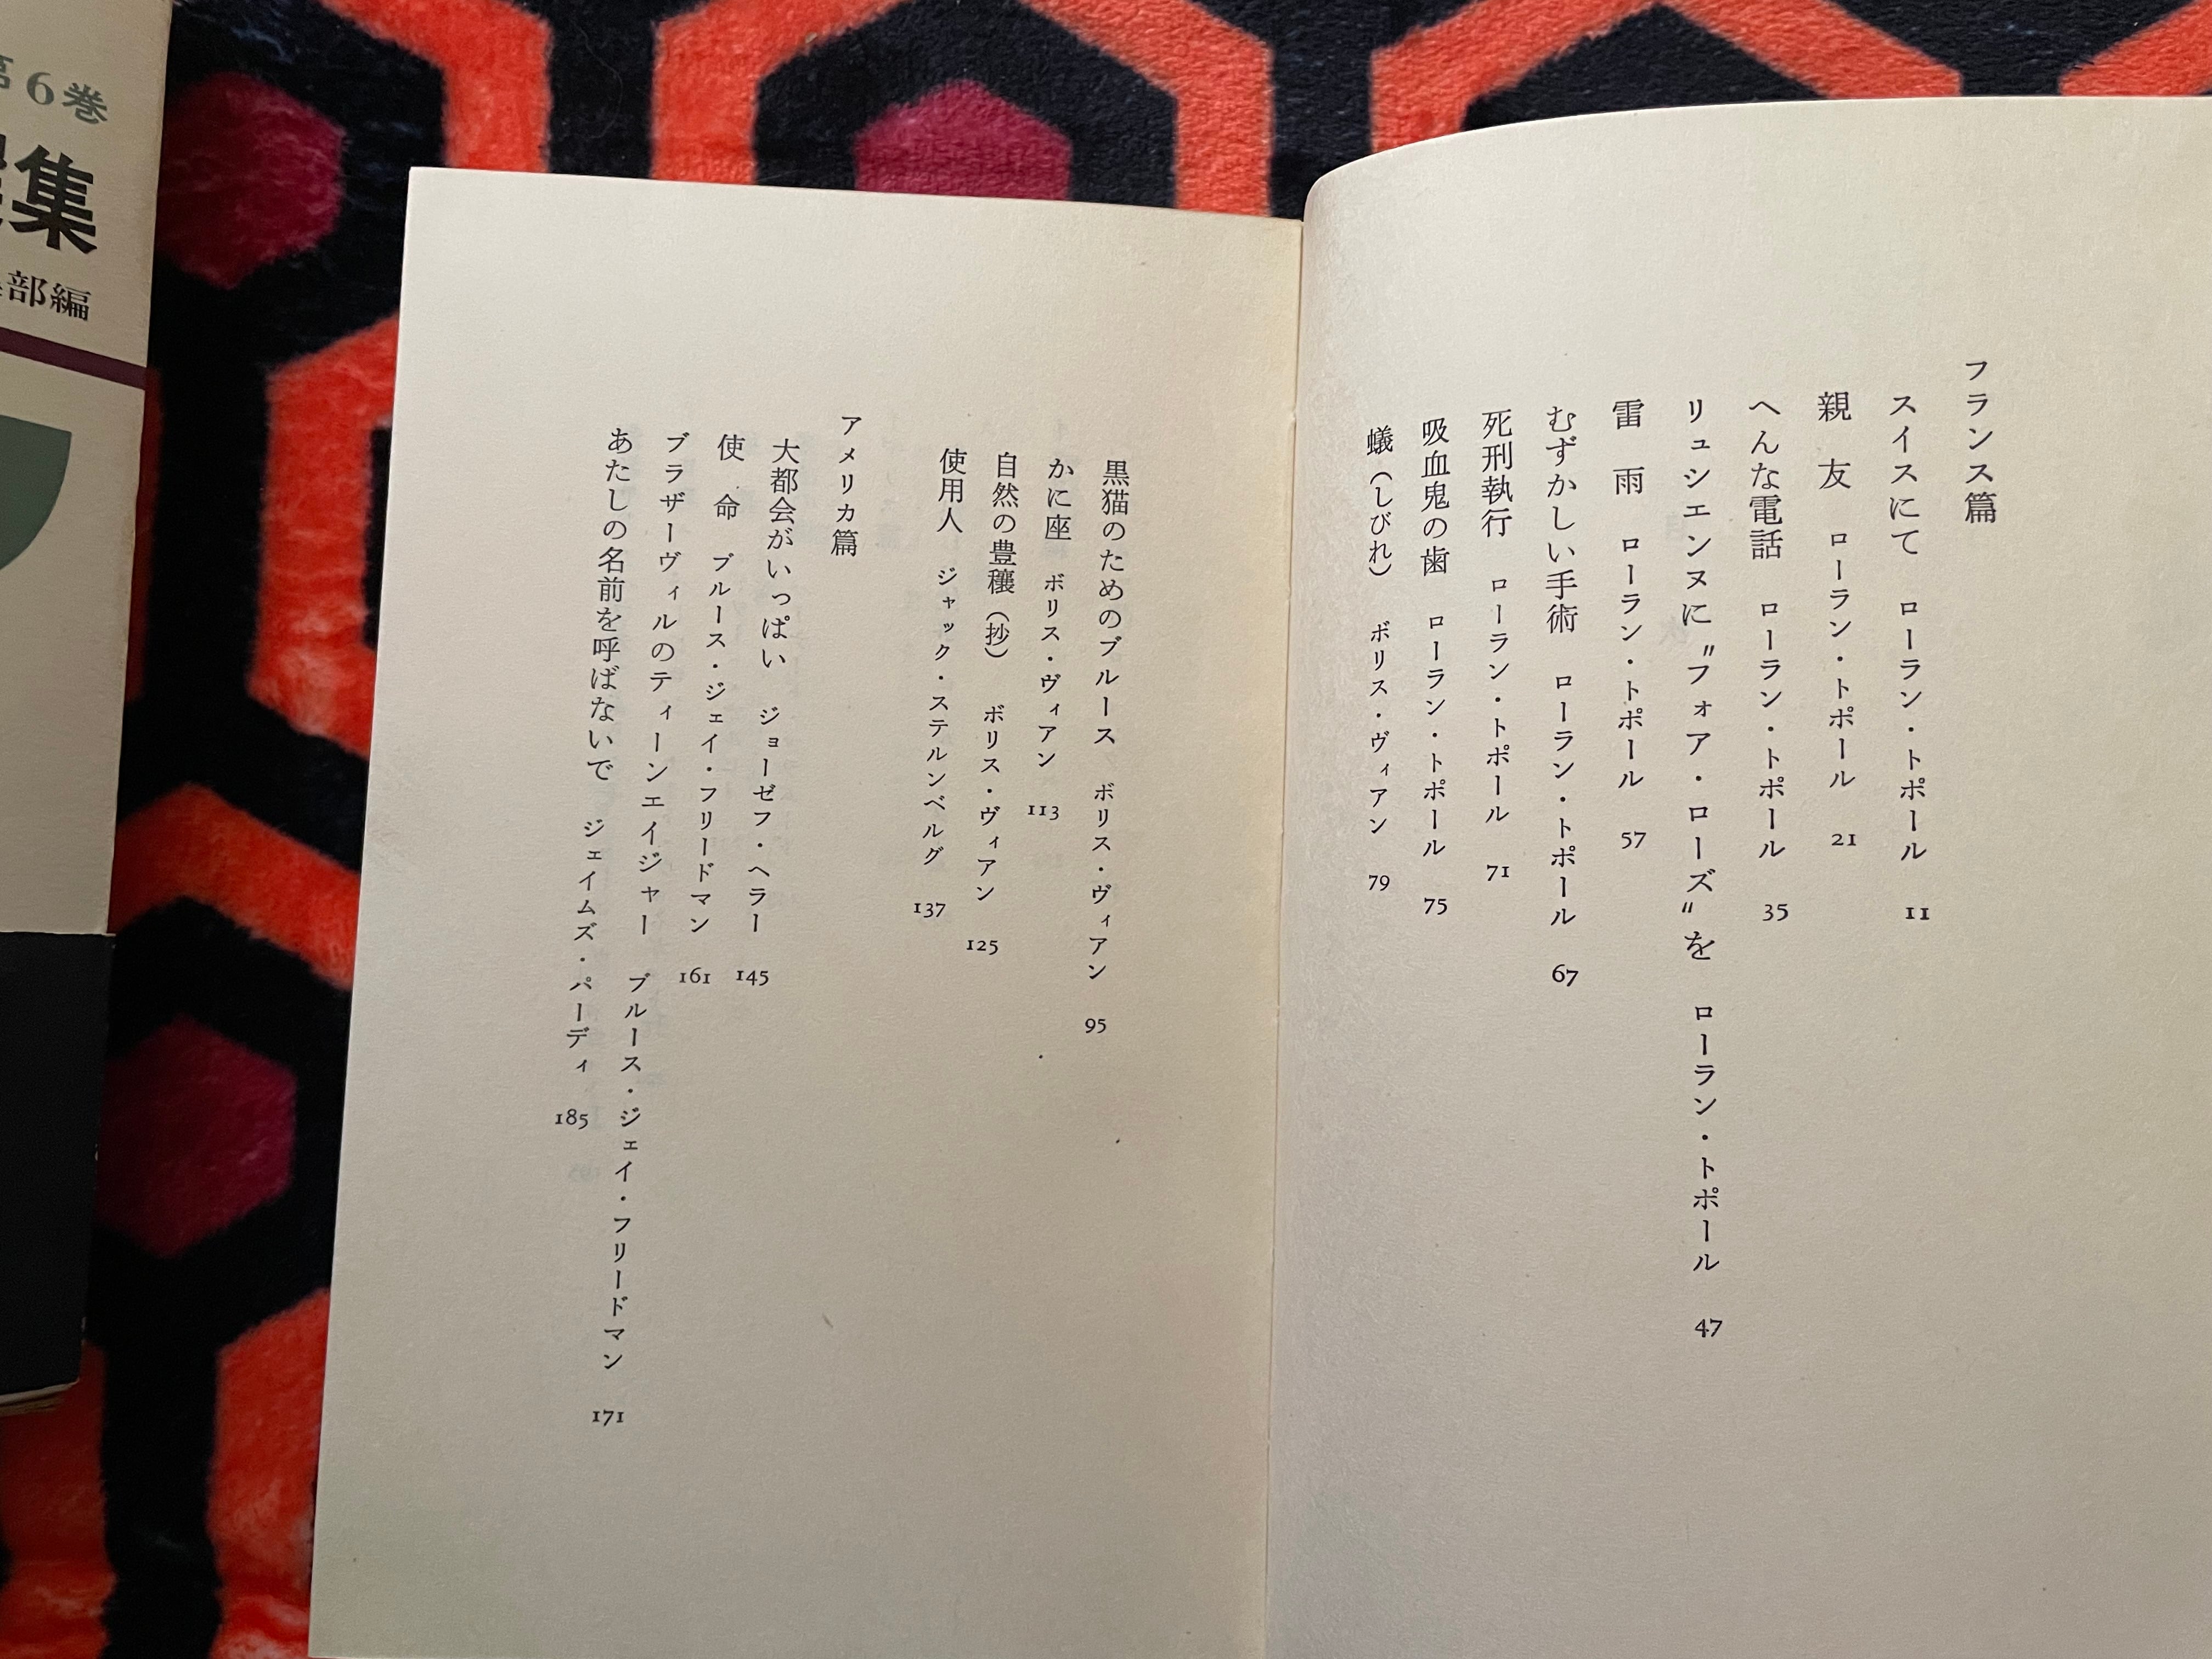 フランス篇
スイスにて ローラン・トポール 11
親友 ローラン・トポール 21
へんな電話 ローラン・トポール 35
リュシエンヌに〝フォア・ローズ〟を ローラン・トポール 47
雷雨 ローラン・トポール 57
むずかしい手術 ローラン・トポール 67
死刑執行 ローラン・トポール 71
吸血鬼の歯 ローラン・トポール 75
蟻(しびれ) ボリス・ヴィアン 79
黒猫のためのブルース ボリス・ヴィアン 95
かに座 ボリス・ヴィアン 113
自然の豊穣(抄) ボリス・ヴィアン 125
使用人 ジャック・ステルンベルグ 137
アメリカ篇
大都会がいっぱい ジョーゼフ・ヘラー 145
使命 ブルース・ジェイ・フリードマン 161
ブラザーヴィルのティーンエイジャー ブルース・ジェイ・フリードマン 171
あたしの名前を呼ばないで ジェイムズ・パーディ 185
第6巻
集
部編